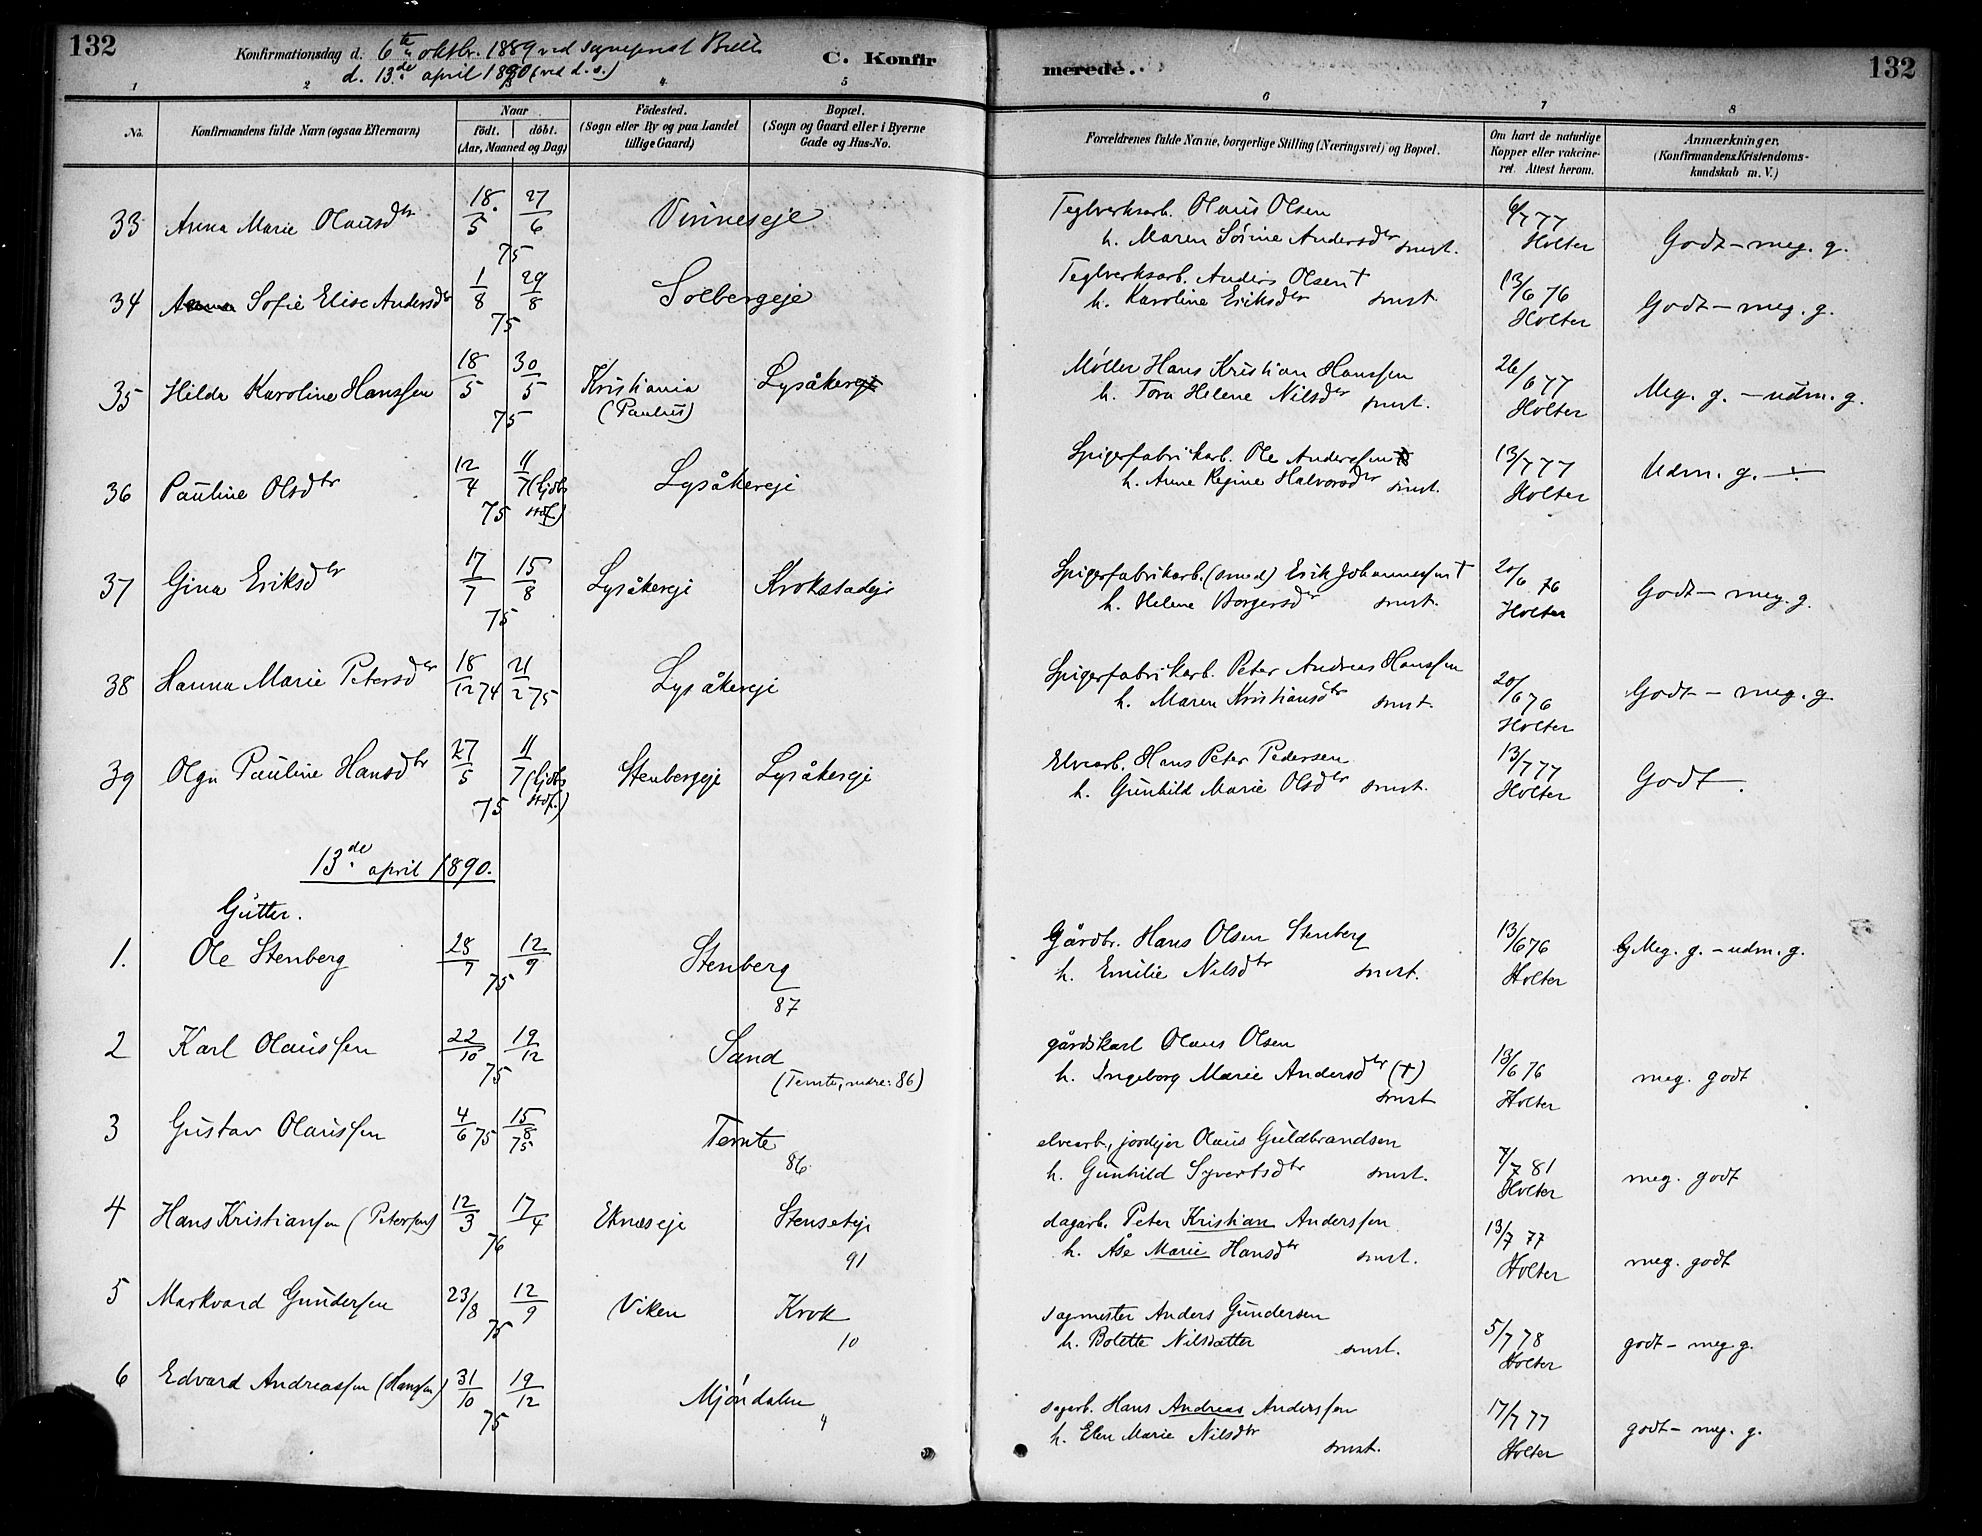 132
Konfirmationsdag d. 6te oktbr. 1889 ved sogneprest
d. 13de april 1890 (ved d. s.)
C. Konfir
merede.
132
1 2 3 4 5 6 7 8
No.
Konfirmandens fulde Navn (ogsaa Efternavn)
Naar
födt. döbt.
(Aar, Maaned og Dag)
Födested.
(Sogn eller By og paa Landet
tillige Gaard)
Bopæl.
(Sogn og Gaard eller i Byerne
Gade og Hus-No.
Forældrenes fulde Navne, borgerlige Stilling (Næringsvei) og Bopæl.
Om havt de naturlige
Kopper eller vakcine-
ret. Attest herom.
Anmærkninger.
(Konfirmandens Kristendoms-
kundskab m. V.)
33 Anna Marie Olausdtr 18/5 27/6 75 Vinneseje
Teglverksarb. Olaus Olsen
h. Maren Sörine Andersdtr smst.
6/7 77 Holter
Godt – meg. g.
34 Anna Sofie Elise Andersdtr 1/8 29/8 75 Solbergeje
Teglverksarb. Anders Olsen †
h. Karoline Eriksdtr smst.
13/6 76 Holter
Godt – meg. g.
35 Hilda Karoline Hanssen 18/5 30/5 75 Kristiania (Paulus) Lysåkereje
Møller Hans Kristian Hanssen
h. Tora Helene Nilsdtr smst.
26/6 77 Holter
Meg. g. – udm. g.
36 Pauline Olsdtr 12/4 11/7 (hjdbt stdf.) 75 Lysåkereje
Spigerfabrikarb. Ole Anderssen
h. Anne Regine Halvorsdtr smst.
13/7 77 Holter
Udm. g. –.
37 Gina Eriksdtr 17/7 15/8 75 Lysåkereje Krokstadeje
Spigerfabrikarb. (smed) Erik Johannessen †
h. Helene Borgersdtr smst.
20/6 76 Holter
Godt – meg. g.
38 Hanna Marie Petersdtr 18/12 74 21/2 75 Lysåkereje
Spigerfabrikarb. Peter Andreas Hanssen
h. Maren Kristiansdtr smst.
20/6 76 Holter
Godt – meg. g.
39 Olga Pauline Hansdtr 27/5 11/7 (hjdbt stdf.) 75 Stenbergeje Lysåkereje
Elvearb. Hans Peter Pedersen
h. Gunhild Marie Olsdtr smst.
13/7 77 Holter
Godt.
13de april 1890.
Gutter.
1. Ole Stenberg 28/7 12/9 75 Stenberg 87
Gårdbr. Hans Olsen Stenberg
h. Emilie Nilsdtr smst.
13/6 76 Holter
Meg. g. – udm. g.
2 Karl Olaussen 22/10 19/12 75 Sand
(Temte, nedre: 86)
gårdskarl Olaus Olsen
h. Ingeborg Marie Andersdtr (†)
smst
13/6 76 Holter
meg. godt
3 Gustav Olaussen 4/6 75 15/8 75 Temte 86
elvearb., jordejer Olaus Guldbrandsen
h. Gunhild Syvertsdtr smst.
7/7 81 Holter
meg. godt
4 Hans Kristiansen (Petersen) 12/3 17/4 76 Eknæseje Stenseteje 91
dagarb. Peter Kristian Anderssen
h. Åse Marie Hansdtr smst.
13/7 77 Holter
meg. godt
5 Markvard Gundersen 23/8 12/9 75 Viken Krok 10
sagmester Anders Gundersen
h. Bolette Nilsdatter smst.
5/7 78 Holter
godt – meg g.
6 Edvard Andreassen (Hanssen) 31/10 19/12 75 Mjöndalen 4
sagarb. Hans Andreas Anderssen
h. Elen Marie Nilsdtr smst.
17/7 77 Holter
godt – meg. g.